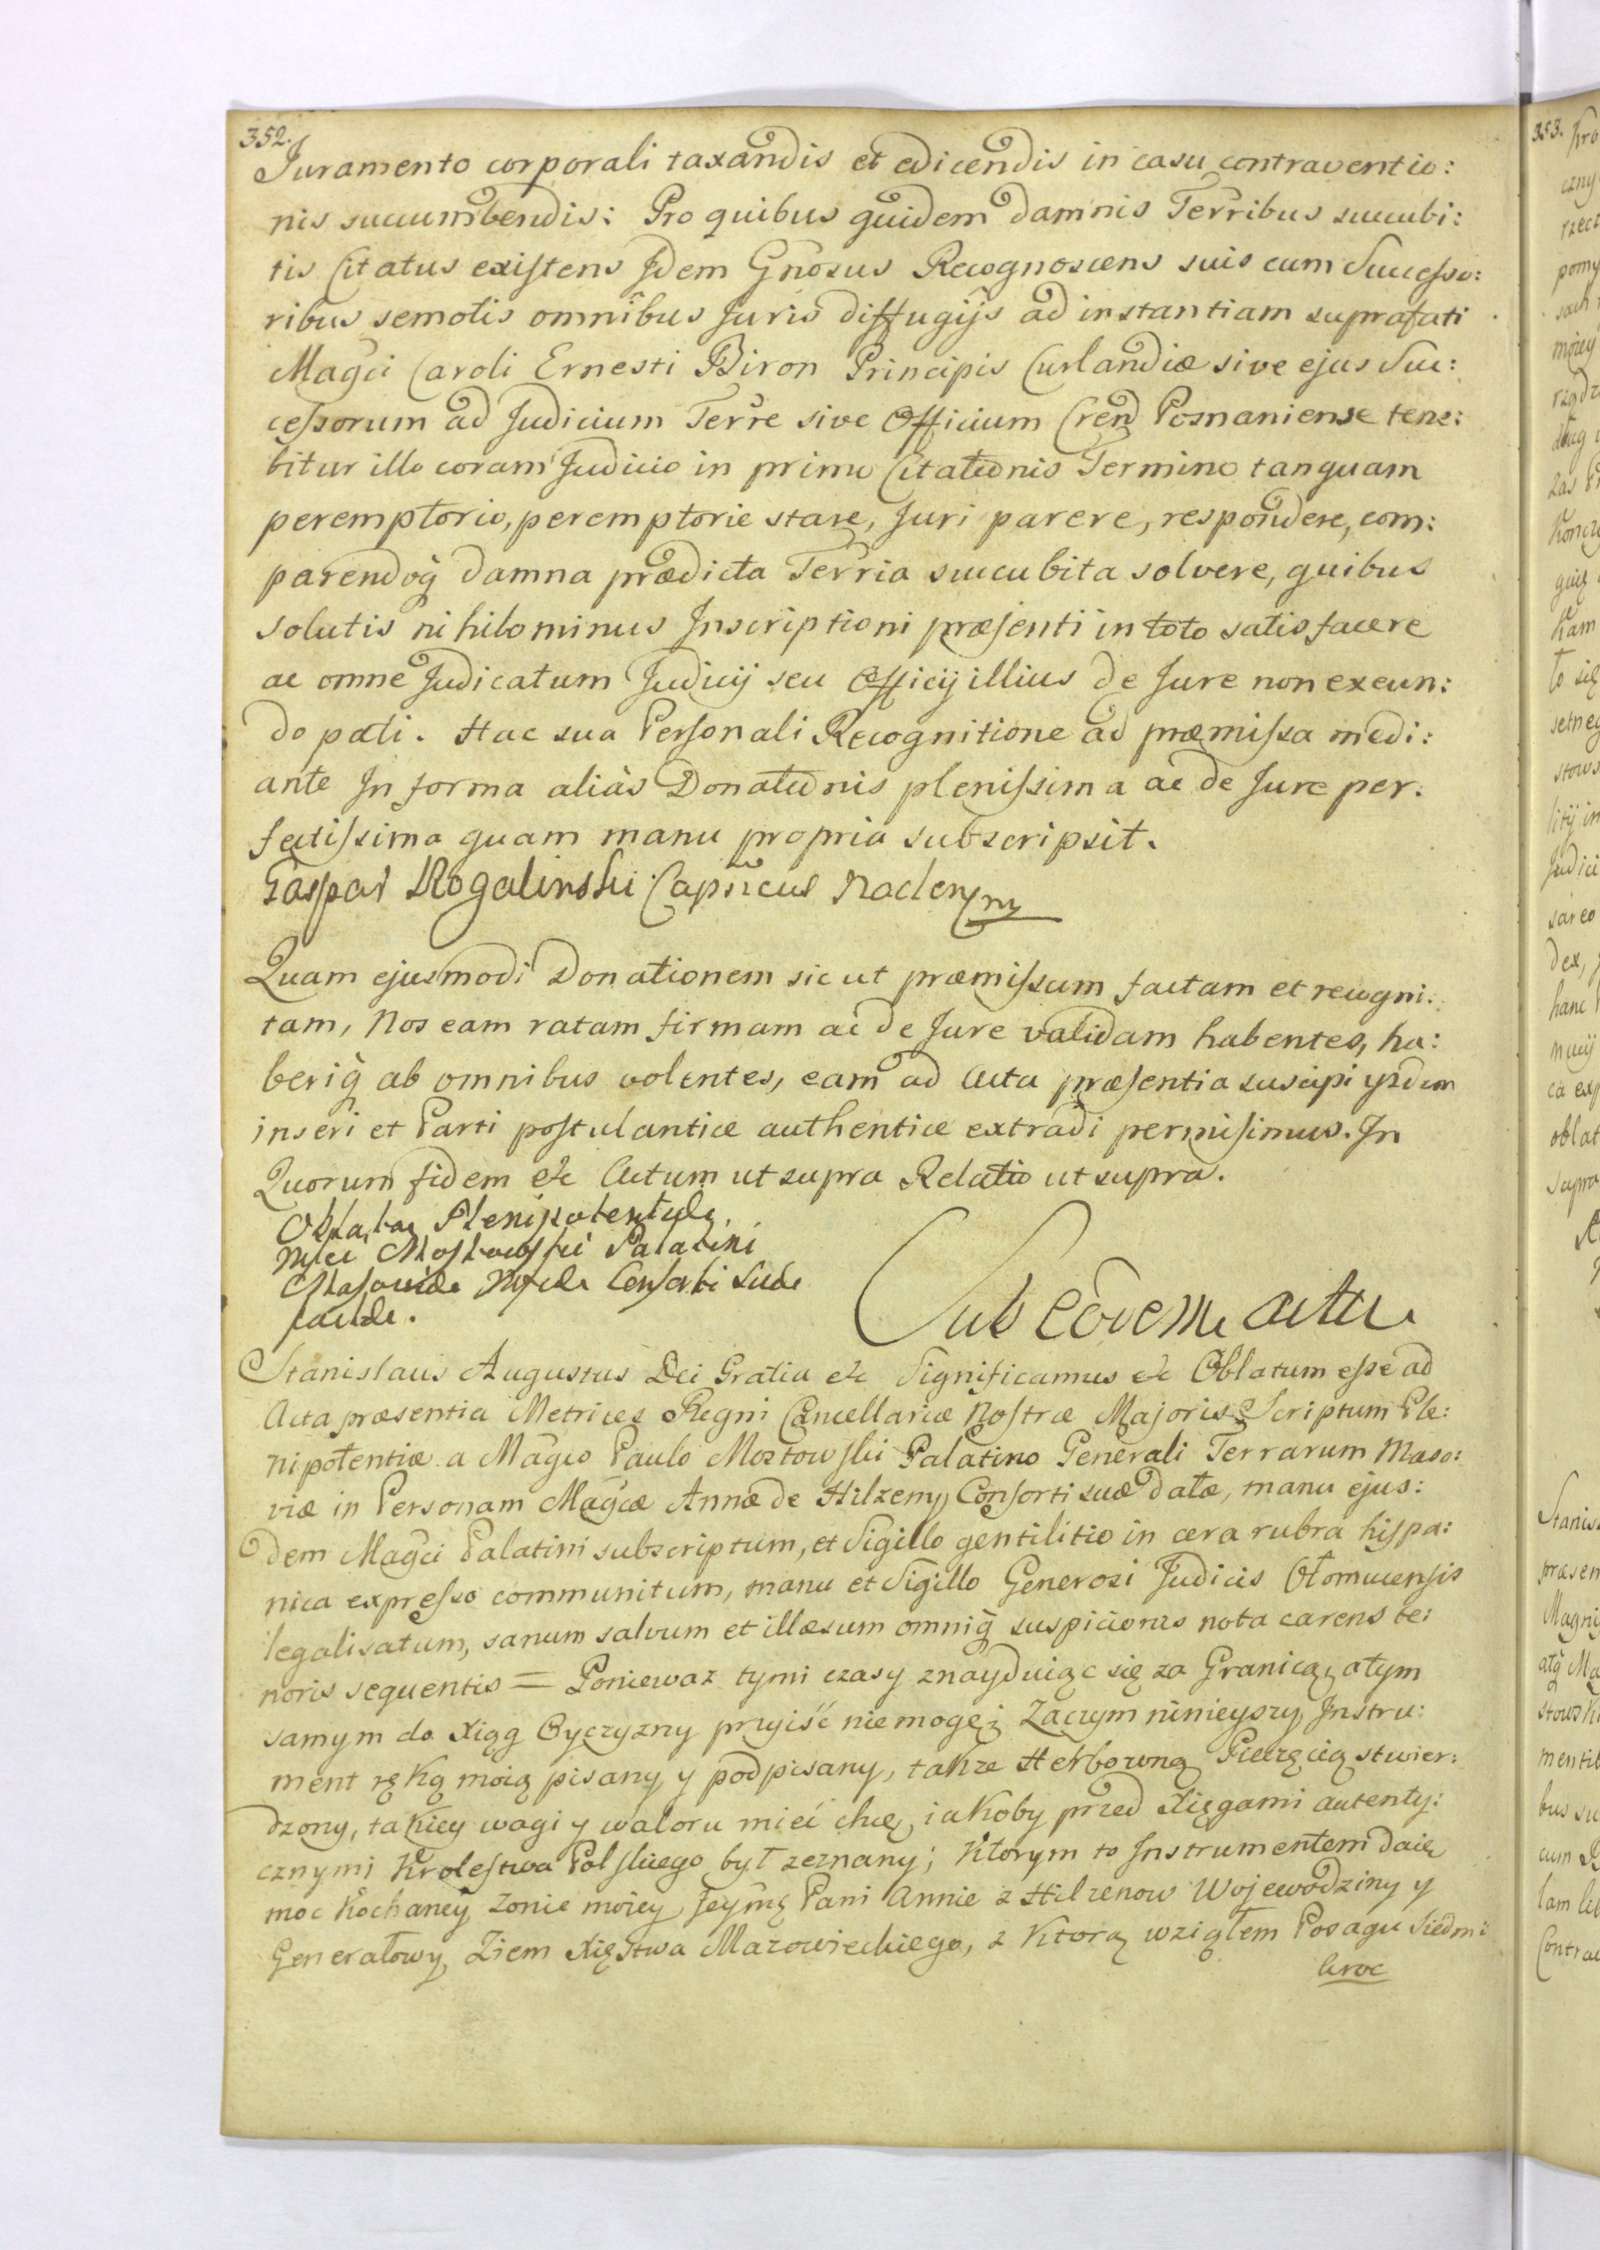 352.
Juramento corporali taxandis et edicendis in casu contraventio:
nis succumbendis: Pro quibus quidem damnis Terribus succubi:
tis Citatus existens Idem Gnosus Recognoscens suis cum Successo:
ribus semotis omnibus Juris diffugijs ad instantiam suprafati
Magci Caroli Ernesti Biron Principis Curlandiæ sive ejus Suc:
cessorum ad Judicium Terre sive Officium Cren Posnaniense tene:
bitur illo coram Judicio in primo Citationis Termino tanquam
peremptorio, peremptorie stare, Juri parere, respondere, com:
parendoq damna prædicta Terria succubita solvere, quibus
solutis nihilominus Inscriptioni præsenti in toto satisfacere
ac omne Judicatum Judicij seu Officij illius de Jure non exeun:
do pati. Hac sua Personali Recognitione ad præmissa medi:
ante In forma aliàs Donationis plenissima ac de Jure per:
fectissima quam manu propria subscripsit.
Gaspar Rogalinski Capneus Naclen mp
Quam ejusmodi Donationem sic ut præmissum factam et recogni:
tam, Nos eam ratam firmam ac de Jure validam habentes, ha:
beriq ab omnibus volentes, eam ad Acta præsentia suscipi ysdem
inseri et Parti postulantiæ authentice extradi permisimus. In
Quorum fidem etc Actum ut supra Relatio ut supra.
Oblatae Plenipotentiæ
Mgci Mostowski Palatini
Masoviæ Mgcæ Consorti suæ
factæ.
Sub eodem actu
Stanislaus Augustus Dei Gratia etc Significamus etc Oblatum esse ad
Acta præsentia Metrices Regni Cancellariæ Nostræ Majoris Scriptum Ple:
nipotentiæ a Magco Paulo Mostowski Palatino Generali Terrarum Maso:
viæ in Personam Magcæ Annæ de Hilzeny Consorti suæ datæ, manu ejus:
dem Magci Palatini subscriptum, et Sigillo gentilitio in cera rubra hispa:
nica expresso communitum, manu et Sigillo Generosi Judicis Ołomucensis
legalisatum, sanum salvum et illæsum omniq suspicionis nota carens te:
noris sequentis = Poniewaz tymi czasy znayduiąc się za Granicą, atym
samym do Xiąg Oyczyzny przyiść niemogę; Zaczym ninieyszy Instru:
ment ręką moią pisany y podpisany, także Herbowną Pieczęcią stwier:
dzony, takiey wagi y waloru mieć chcę, iakoby przed Xięgami autenty:
cznymi Krolestwa Polskiego był zeznany; Ktorym to Instrumentem daię
moc Kochaney Zonie moiey Jeymę Pani Annie z Hilzenow Wojewodziny y
Generałowy Ziem Xięstwa Mazowieckiego, z Ktorą wziąłem Posagu Siedm:
kroc